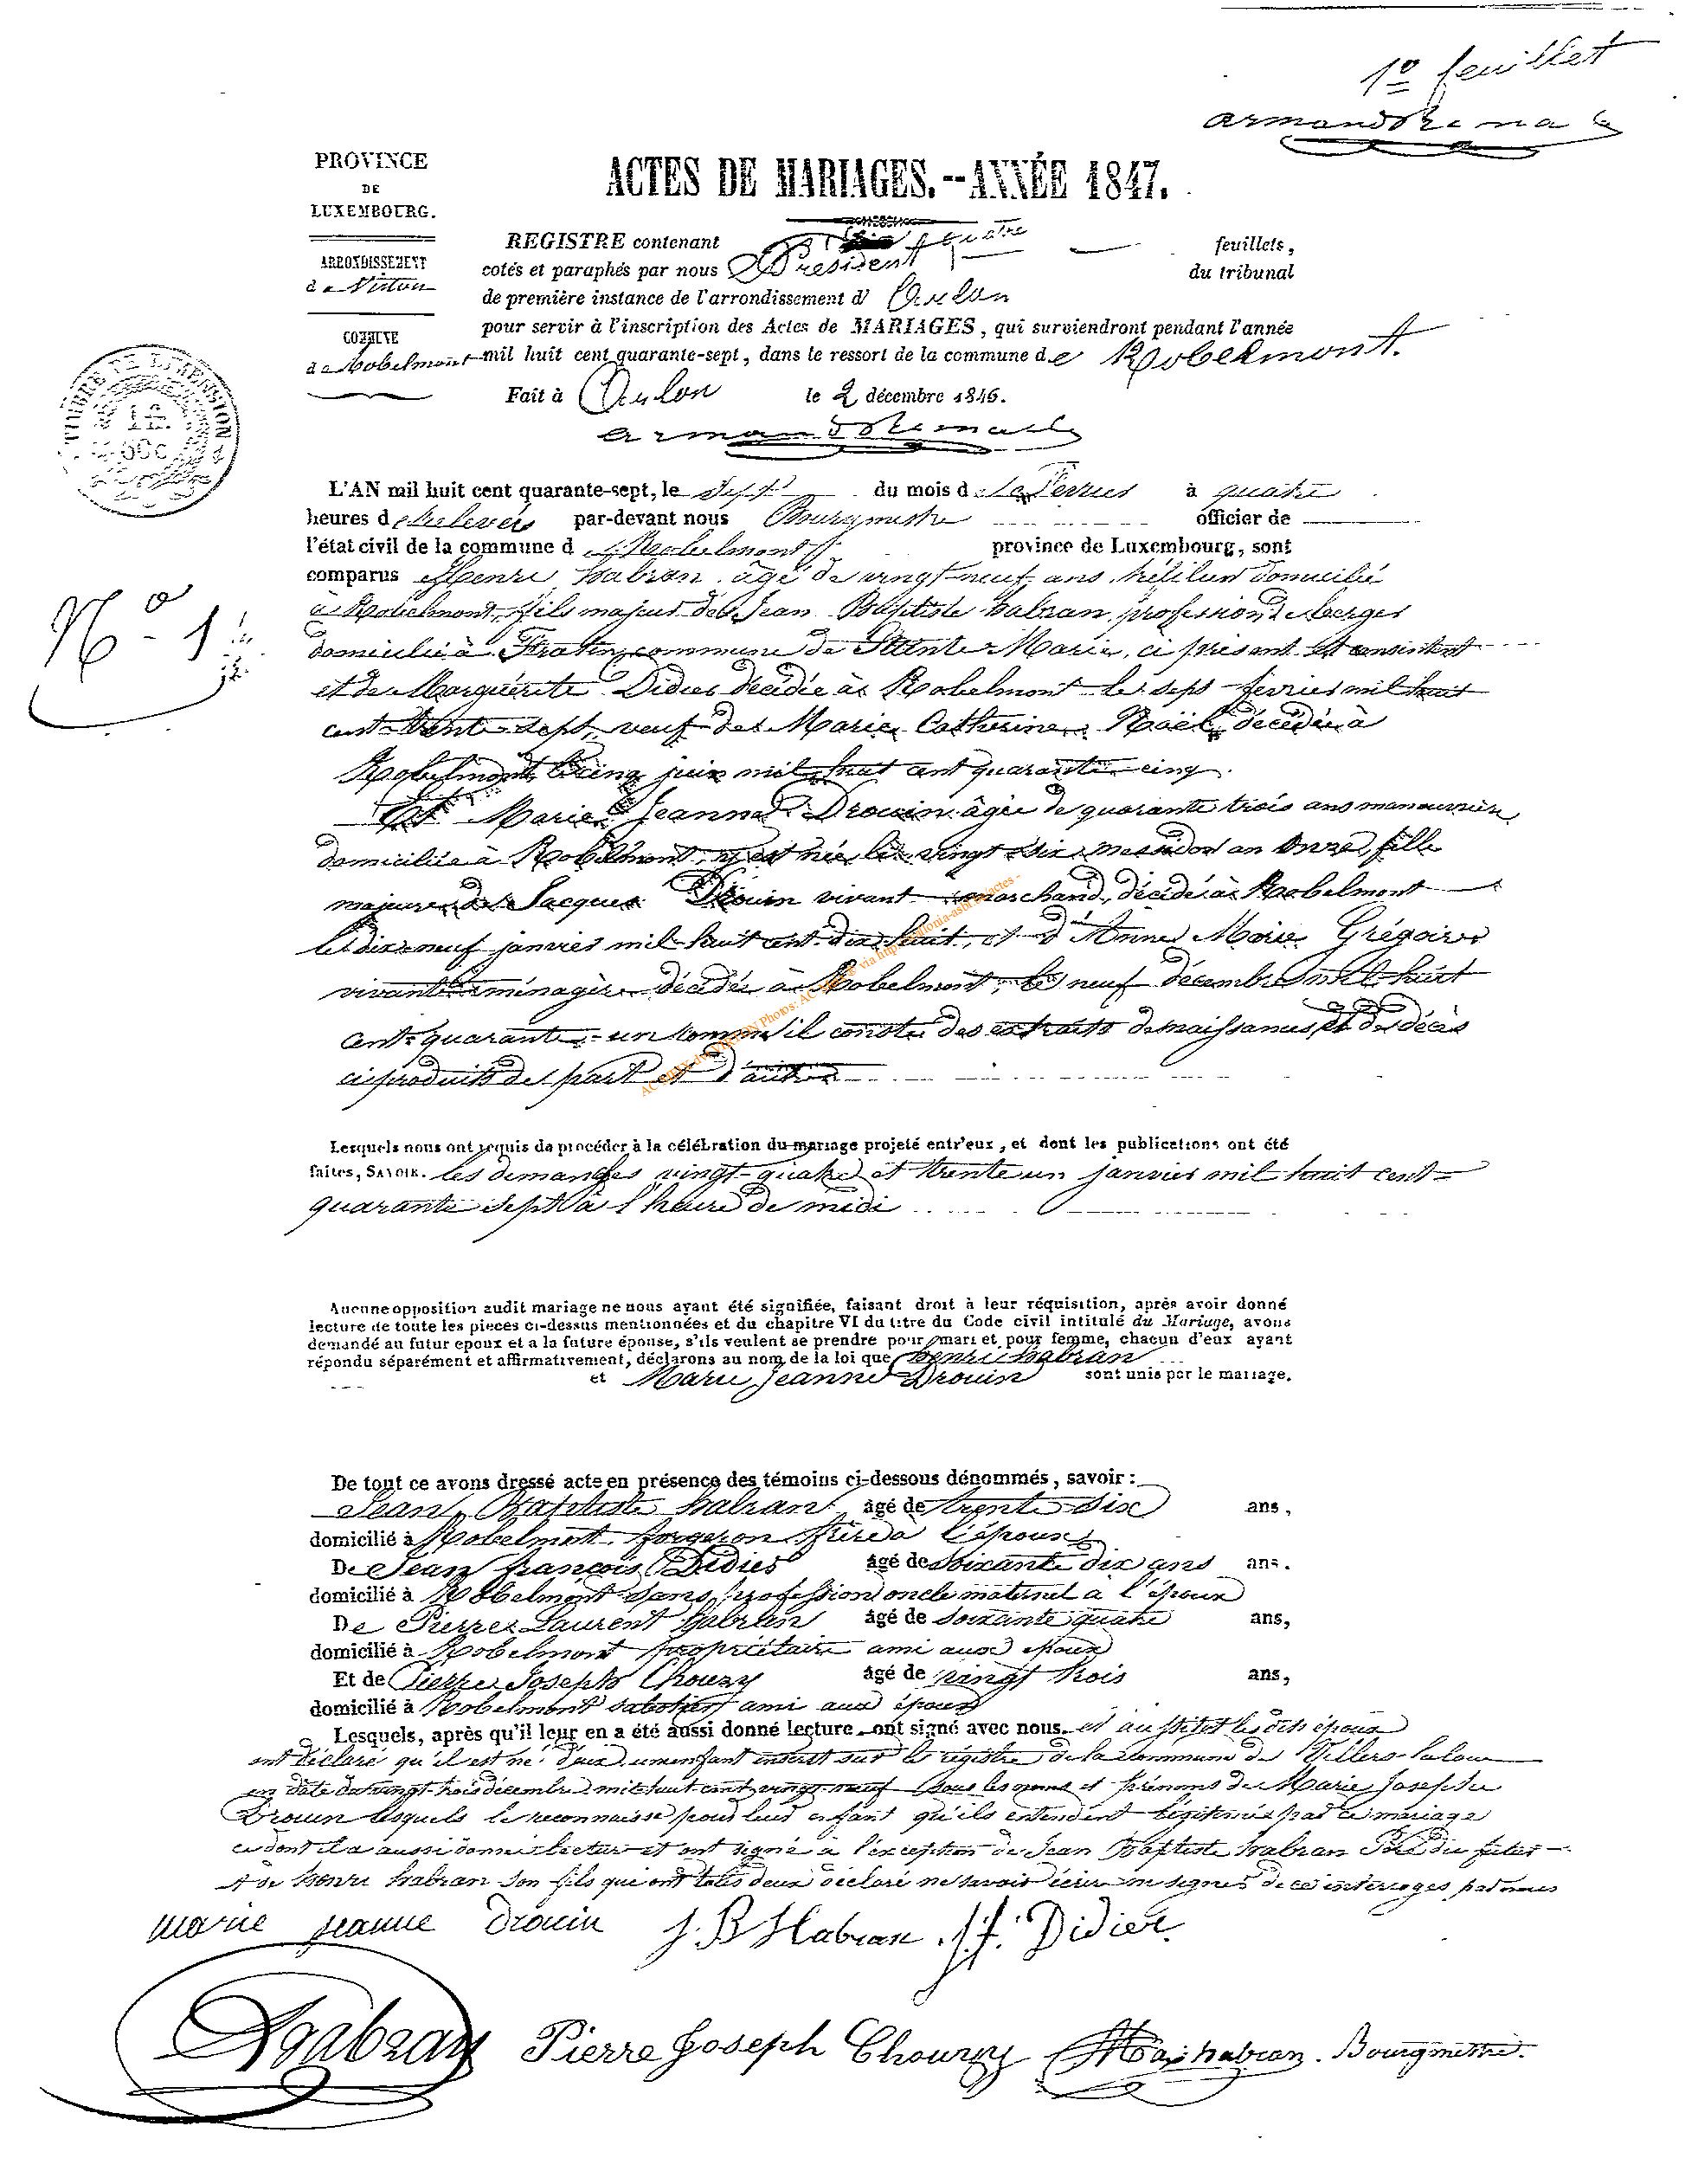 1º feuillet
PROVINCE
DE
LUXEMBOURG.
ARRONDISSEMENT
de Virton
COMMUNE
de Robelmont
TIMBRE DE DIMENSION
ACTES DE MARIAGES.--ANNÉE 1847.
REGISTRE contenant quatre feuillets,
cotés et paraphés par nous Président du tribunal
de première instance de l'arrondissement d' Arlon
pour servir à l'inscription des Actes de MARIAGES, qui surviendront pendant l'année
mil huit cent quarante-sept, dans le ressort de la commune de Robelmont.
Fait à Arlon le 2 décembre 1846.
Nº 1
L'AN mil huit cent quarante-sept, le sept du mois de Février à quatre
heures de relevée par-devant nous Bourgmestre officier de
l'état civil de la commune de Robelmont province de Luxembourg, sont
comparus Henri habran âgé de vingt-neuf ans, domicilié
à Robelmont, fils majeur de Jean Baptiste habran, profession de berger
domicilié à Fratin, commune de Sainte Marie, ci présent et consentent
et de Marguérite Didier décédée à Robelmont le sept février mil huit
cent trente-sept, veuf de Marie Catherine Noël, décédée à
Robelmont le cinq juin mil huit cent quarante cinq.
Et Marie Jeanne Drouin âgée de quarante trois ans manouvrière
domiciliée à Robelmont, y est née le vingt six messidor an onze, fille
majeure de Jacques Drouin vivant marchand, décédé à Robelmont
le dix-neuf janvier mil huit cent dix huit, et d'Anne Marie Grégoire
vivante ménagère décédée à Robelmont, le neuf décembre mil huit
cent quarante-un comme il conste des extraits de naissances et de décès
ci produits de part et d'autre
Lesquels nous ont requis de procéder à la célébration du mariage projeté entr'eux, et dont les publications ont été
faites, SAVOIR. les dimanches vingt-quatre et trente un janvier mil huit cent
quarante sept à l'heure de midi
Aucune opposition audit mariage ne nous ayant été signifiée, faisant droit à leur réquisition, après avoir donné
lecture de toute les pieces ci-dessus mentionnées et du chapitre VI du titre du Code civil intitulé du Mariage, avons
demandé au futur epoux et a la future épouse, s'ils veulent se prendre pour mari et pour femme, chacun d'eux ayant
répondu séparément et affirmativement, déclarons au nom de la loi que henri habran
et Marie Jeanne Drouin sont unis par le mariage.
De tout ce avons dressé acte en présence des témoins ci-dessous dénommés, savoir:
Jean Baptiste habran âgé de trente six ans,
domicilié à Robelmont forgeron frère à l'époux
De Jean françois Didier âgé de soixante dix ans ans.
domicilié à Robelmont sans profession oncle maternel à l'époux
De Pierre Laurent habran âgé de soixante quatre ans,
domicilié à Robelmont propriétaire ami aux époux
Et de Pierre Joseph Chouzy âgé de vingt trois ans,
domicilié à Robelmont sabotier ami aux époux
Lesquels, après qu'il leur en a été aussi donné lecture ont signé avec nous. et aussitôt les dits époux
ont déclaré qu'il est né d'eux un enfant inscrit sur le régistre de la commune de Villers
en date du vingt trois décembre mil huit cent vingt neuf sous les noms et prénoms de Marie Josephe
Drouin lesquels le reconnaisse pour leur enfant qu'ils entendent légitimer par ce mariage
ce dont il a aussi donné lecture et ont signé à l'exception de Jean Baptiste habran Père du futur
et de henri habran son fils qui ont tous deux déclaré ne savoir écrire ni signer de ce interrogés par nous
marie jeanne drouin J. B Habran. J. f. Didier
Habran Pierre Joseph Chouzy habran. Bourgmestre.